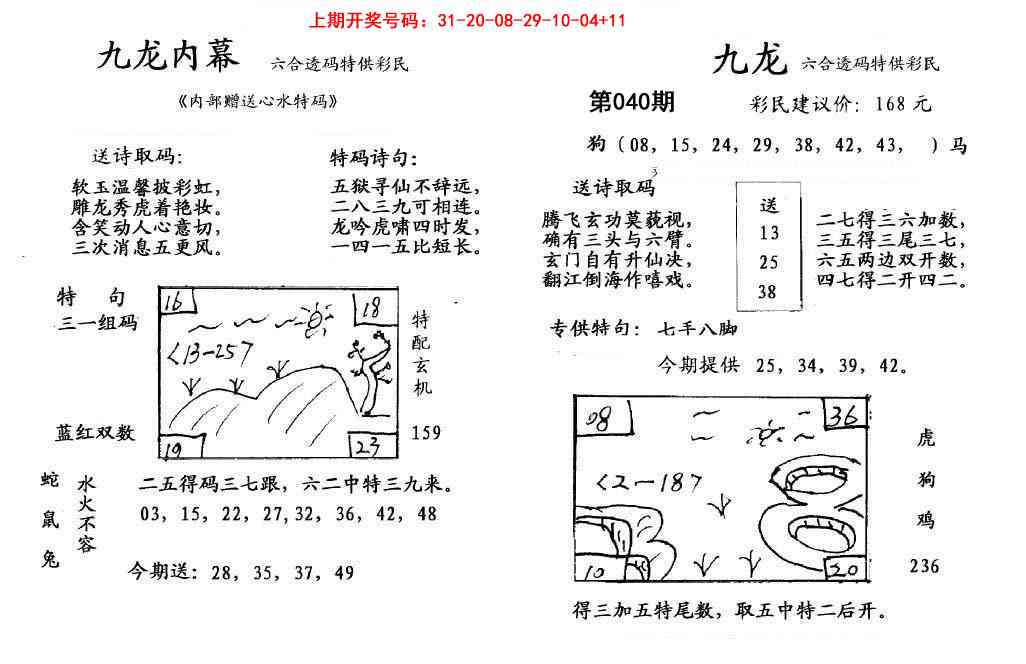 上期开奖号码：31-20-08-29-10-04+11
九龙内幕 六合透码特供彩民
《内部赠送心水特码》
送诗取码：
软玉温馨披彩虹，
雕龙秀虎着艳妆。
含笑动人心意切，
三次消息五更风。
特码诗句：
五狱寻仙不辞远，
二八三九可相连。
龙吟虎啸四时发，
一四一五比短长。
特 句
三一组码
蓝红双数
16
18
<13-25>
19
23
特配玄机
159
蛇
鼠
兔
水火不容
二五得码三七跟，六二中特三九来。
03，15，22，27，32，36，42，48
今期送：28，35，37，49
九龙 六合透码特供彩民
第040期 彩民建议价：168元
狗（08，15，24，29，38，42，43， ）马
送诗取码
3
腾飞玄功莫藐视，
确有三头与六臂。
玄门自有升仙决，
翻江倒海作嘻戏。
送
13
25
38
二七得三六加数，
三五得三尾三七，
六五两边双开数，
四七得二开四二。
专供特句：七手八脚
今期提供 25，34，39，42。
08
36
<2-18>
10
20
虎
狗
鸡
236
得三加五特尾数，取五中特二后开。